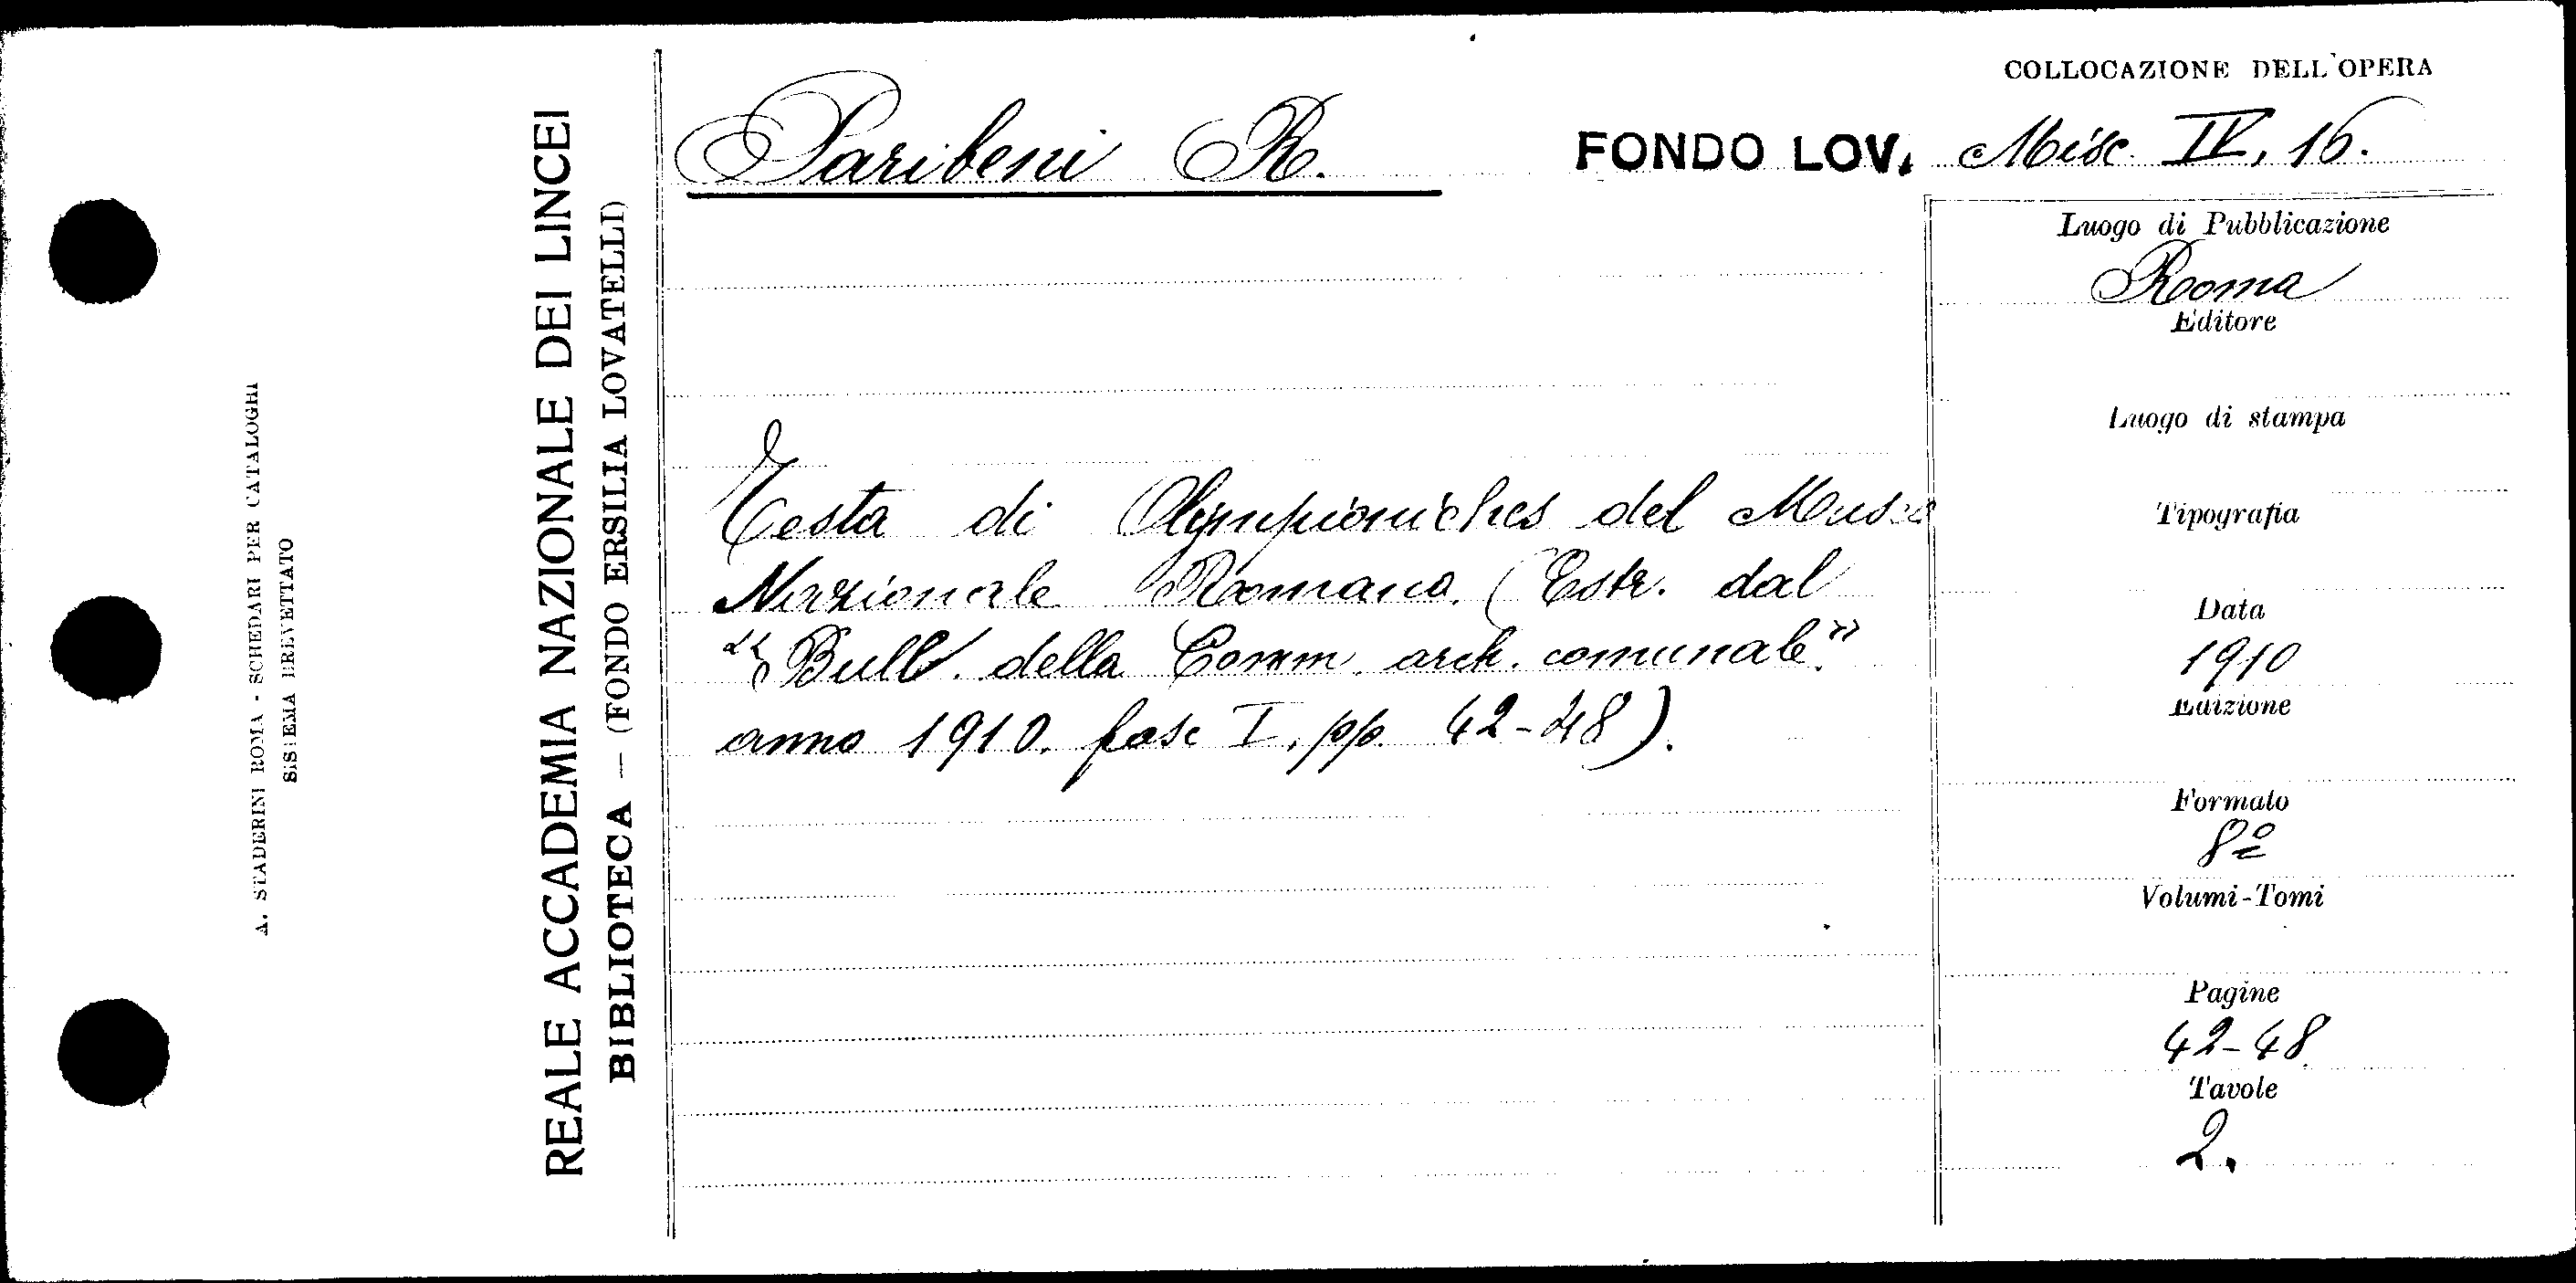 A. STADERINI ROMA - SCHEDARI PER CATALOGHI
SISTEMA BREVETTATO
REALE ACCADEMIA NAZIONALE DEI LINCEI
BIBLIOTECA — (FONDO ERSILIA LOVATELLI)
Paribeni R.
COLLOCAZIONE DELL'OPERA
FONDO LOV. Misc. IV, 16.
Testa di Olympioniches del Museo
Nazionale Romano. (Estr. dal
"Bull. della Comm. arch. comunale"
anno 1910. fasc I, pp. 42-48).
Luogo di Pubblicazione
Roma
Editore
Luogo di stampa
Tipografia
Data
1910
Edizione
Formato
8º
Volumi-Tomi
Pagine
42-48
Tavole
2.